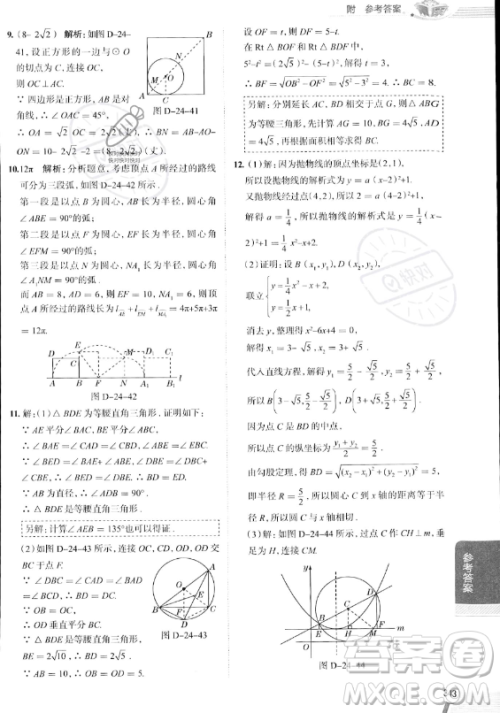 附 参考答案
9. (8-2√2) 解析:如图 D-24-
41, 设正方形的一边与⊙O
的切点为 C, 连接 OC,
则 OC⊥AC.
∵ 四边形是正方形, AC 是
对角线, ∴ ∠OAC = 45°.
∴ OA = √2 OC = 2√2
图 D-24-41
10. 12π 解析:分析题意, 考虑顶点 A 所经过的路线
可分为三段弧. 如图 D-24-42 所示.
第一段是以点 B 为圆心, AB 长为半径, 圆心角
∠ABE = 90°的弧;
第二段是以点 F 为圆心, 长为半径, 圆心角
∠EFM = 90°的弧;
第三段是以点 N 为圆心, 长为半径, 圆心角
= 90°的弧.
而 AB = 8, EF = 10, = 6, ∴ 顶点
A 所经过的路线长为 = 4π+5π+3π
= 12π.
图 D-24-42
11. 解:(1)△ BDE 为等腰直角三角形. 证明如下:
∵ AE 平分∠BAC, BE 平分∠ABC,
∴ ∠BAE = ∠CAD = ∠CBD, ∠ABE = ∠EBC.
∵ ∠BED = ∠BAE+ ∠ABE, ∠DBE = ∠DBC+
∠CBE, ∴ ∠BED = ∠DBE. ∴ BD = ED.
∵ AB 为直径, ∴ ∠ADB = 90°.
∴ △ BDE 为等腰直角三角形.
另解:计算∠AEB = 135°也可以得证.
(2)如图 D-24-43 所示, 连接 OC, CD, OD, OD 交
BC 于点 F.
∵ ∠DBC = ∠CAD = ∠BAD = ∠BCD,
∴ BD = DC.
∵ OB = OC,
∴ OD 垂直平分 BC.
∵ △ BDE 是等腰直角三角形,
BE = 2√10, ∴ BD = 2√5.
∵ AB = 10, ∴ OB = OD = 5.
图 D-24-43
设 OF = t, 则 DF = 5-t.
在 Rt△ BOF 和 Rt△ BDF 中,
5²-t² = (2√5)²-(5-t)², 解得 t = 3.
∴ BF = √(OB²-OF²) = √(5²-3²) = 4. ∴ BC = 8.
另解:分别延长 AC, BD 相交于点 G, 则△ ABG
为等腰三角形, 先计算 AG = 10, BG = 4√5, AD =
4√5, 再根据面积相等求得 BC.
12. (1)解:因为抛物线的顶点坐标是(2,1),
所以设抛物线的解析式为 y = a(x-2)²+1.
又抛物线经过点(4,2), 所以 2 = a(4-2)²+1,
解得 a = 1/4. 所以抛物线的解析式为 y = 1/4 (x-
2)²+1 = 1/4 x²-x+2.
(2)证明:设 B(x₁,y₁), D(x₂,y₂),
联立
消去 y, 整理得 x²-6x+4 = 0,
解得 x₁ = 3-√5, x₂ = 3+√5.
代入直线方程, 解得 y₁ = 5/2 - √5/2, y₂ = 5/2 + √5/2.
所以 B(3-√5, 5/2-√5/2), D(3+√5, 5/2+√5/2).
因为点 C 是 BD 的中点,
所以点 C 的纵坐标为 (y₁+y₂)/2 = 5/2.
由勾股定理, 得 BD = √((x₁-x₂)²+(y₁-y₂)²) = 5,
即半径 R = 5/2, 所以圆心 C 到 x 轴的距离等于半径 R,
所以圆 C 与 x 轴相切.
(3)解:如图 D-24-44 所示,
图 D-24-44
参考答案